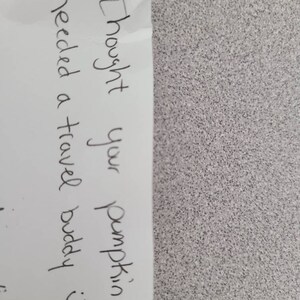 thought your pumpkin
needed a travel buddy